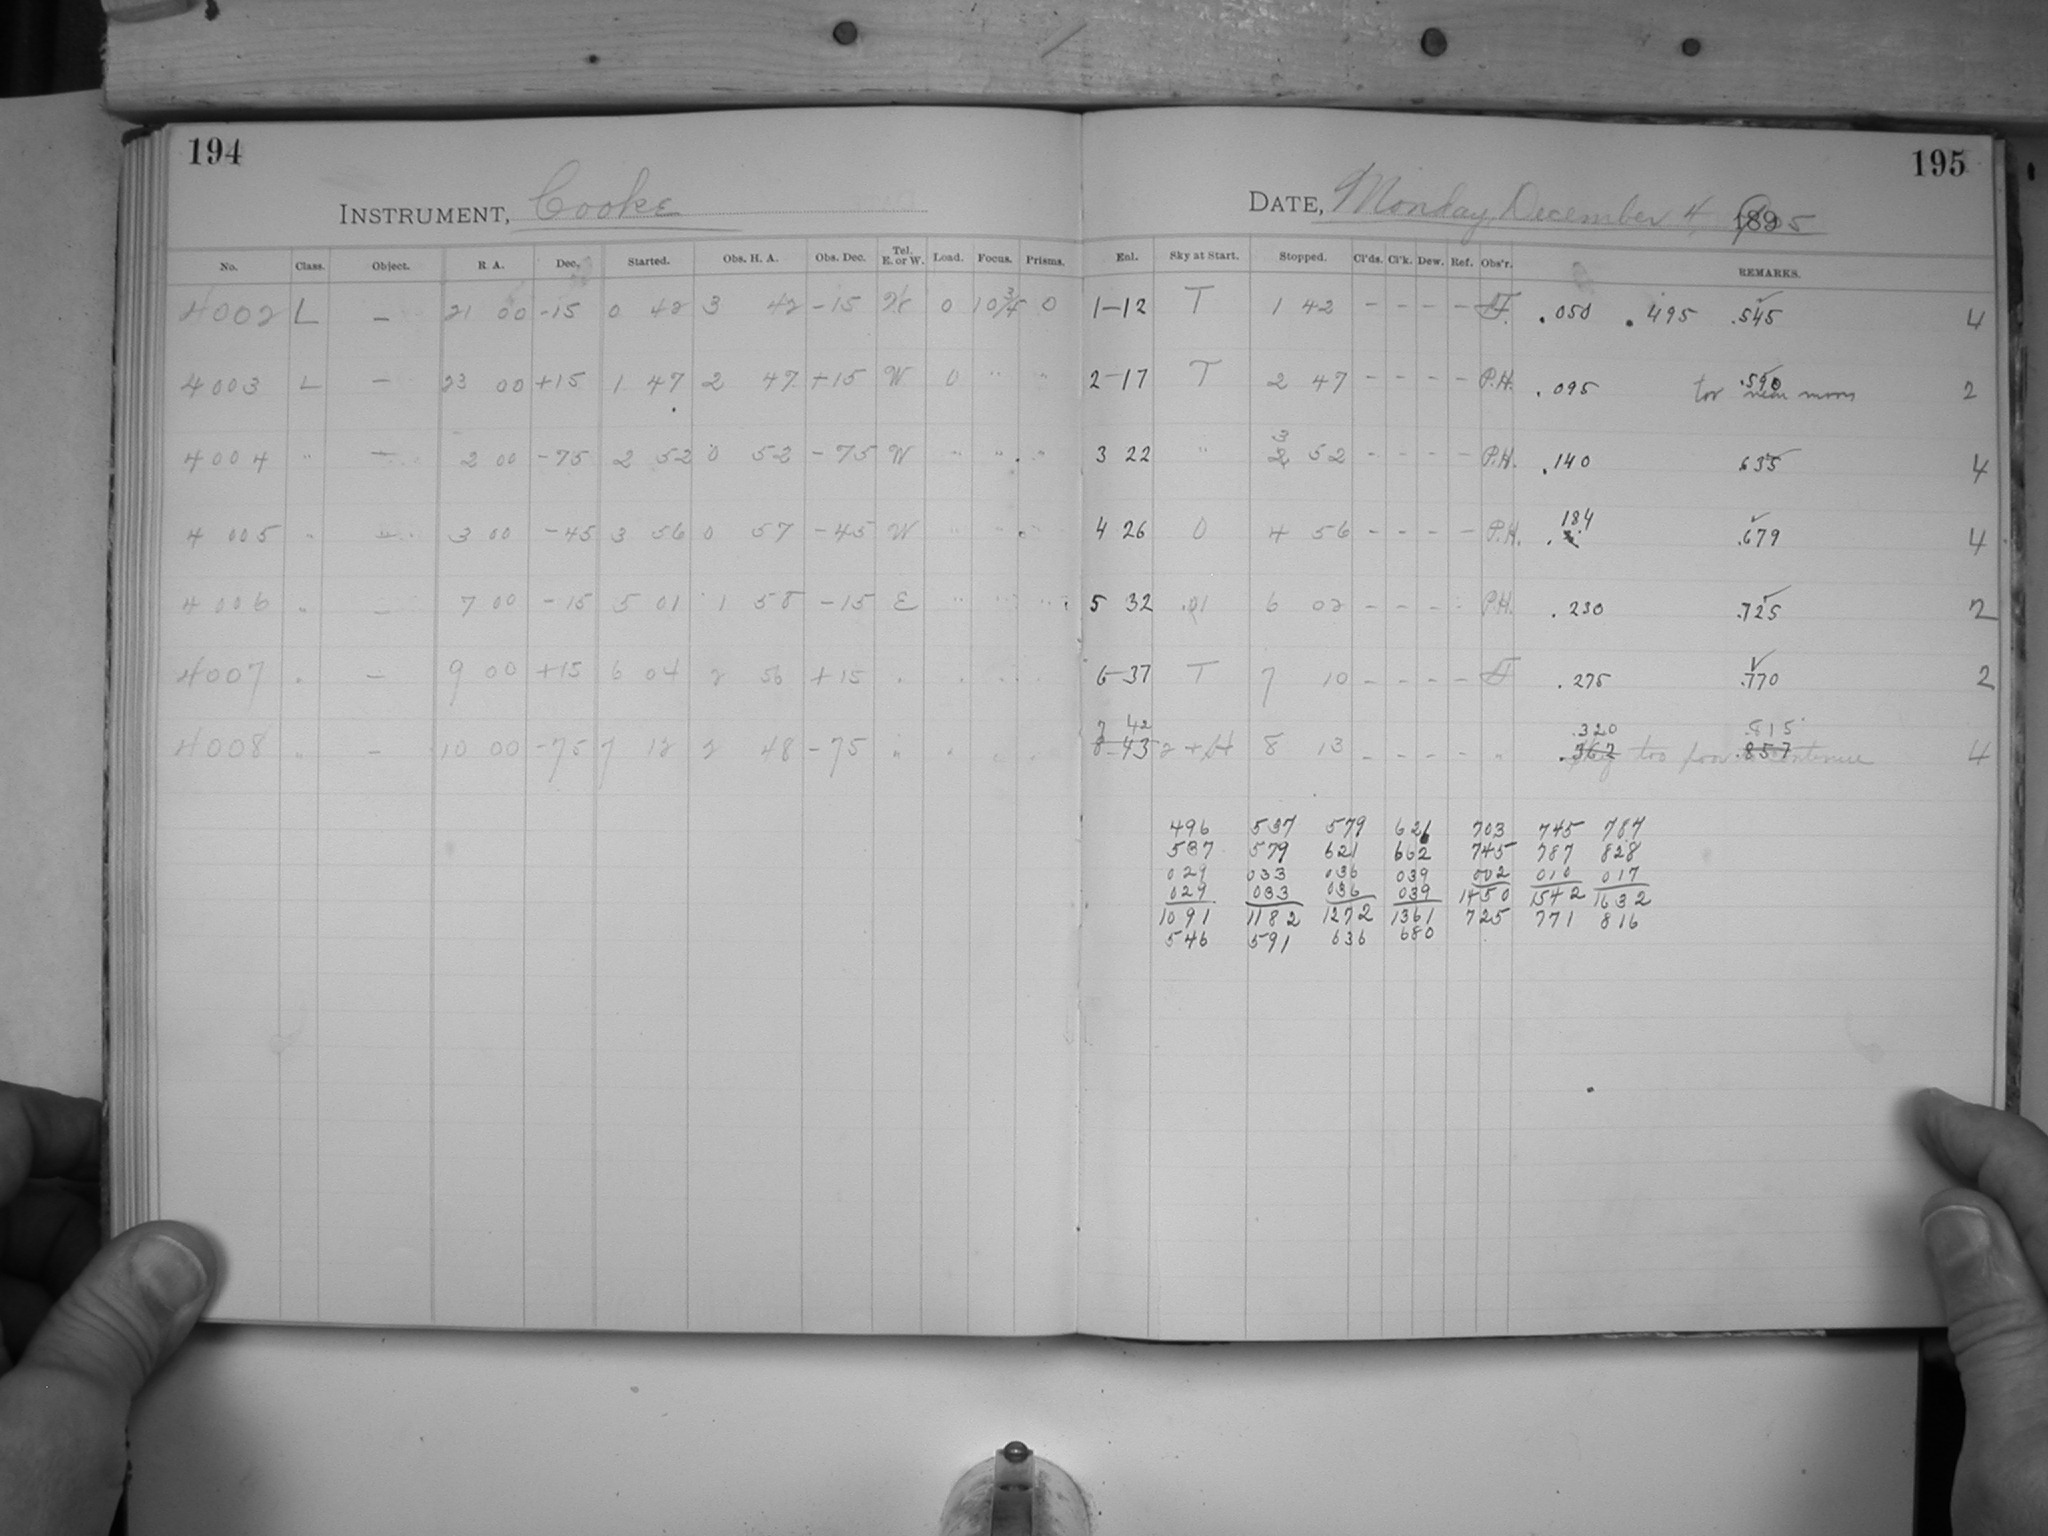 194
INSTRUMENT, Cooke
No. Class. Object. R A. Dec. Started. Obs. H. A. Obs. Dec. Tel. E. or W. Load. Focus. Prisms.
4002 L — 21 00 -15 0 42 3 42 -15 W 0 10 3/4 0
4003 L — 23 00 +15 1 47 2 47 +15 W 0 " "
4004 " — 2 00 -75 2 52 0 52 -75 W " " "
4005 " — 3 00 -45 3 56 0 57 -45 W " " "
4006 " — 7 00 -15 5 01 1 58 -15 E " " "
4007 " — 9 00 +15 6 04 2 56 +15 " " " "
4008 " — 10 00 -75 7 12 2 48 -75 " " " "
195
DATE, Monday, December 4, 1905
Enl. Sky at Start. Stopped. Cl'ds. Cl'k. Dew. Ref. Obs'r. REMARKS.
1-12 T 1 42 - - - - .050 .495 .545 4
2-17 T 2 47 - - - - P.H. .095 .590 too near moon 2
3 22 " 3 52 - - - - P.H. .140 635 4
4 26 0 4 56 - - - - P.H. .184 .679 4
5 32 6 02 - - - - P.H. .230 .725 2
6-37 T 7 10 - - - - .275 .770 2
7 42 .320 .815
8-43 8 13 - - - - " .362 .857 Sky too poor to continue 4
496 537 579 621 703 745 787
537 579 621 662 745 787 828
029 033 036 039 002 010 017
029 033 036 039 1450 1542 1632
1091 1182 1272 1361 725 771 816
546 591 636 680